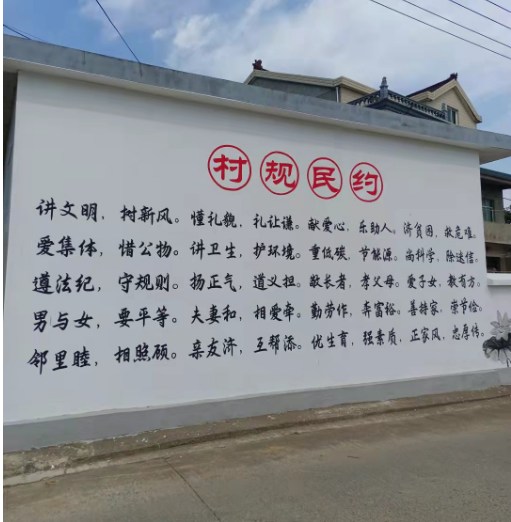 村规民约
讲文明，树新风。懂礼貌，礼让谦。献爱心，乐助人。济贫困，救危难。
爱集体，惜公物。讲卫生，护环境。重低碳，节能源。尚科学，除迷信。
遵法纪，守规则。扬正气，道义担。敬长者，孝父母。爱子女，教有方。
男与女，要平等。夫妻和，相爱牵。勤劳作，奔富裕。善持家，崇节俭。
邻里睦，相照顾。亲友济，互帮添。优生育，强素质，正家风，忠厚传。